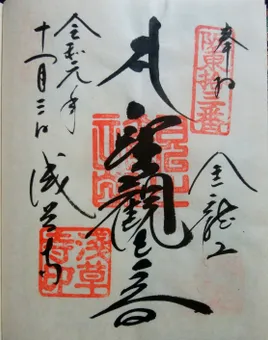 奉拝
坂東拾三番
金龍山
聖觀世音
令和元年
十一月三日
浅草寺
淺草寺印